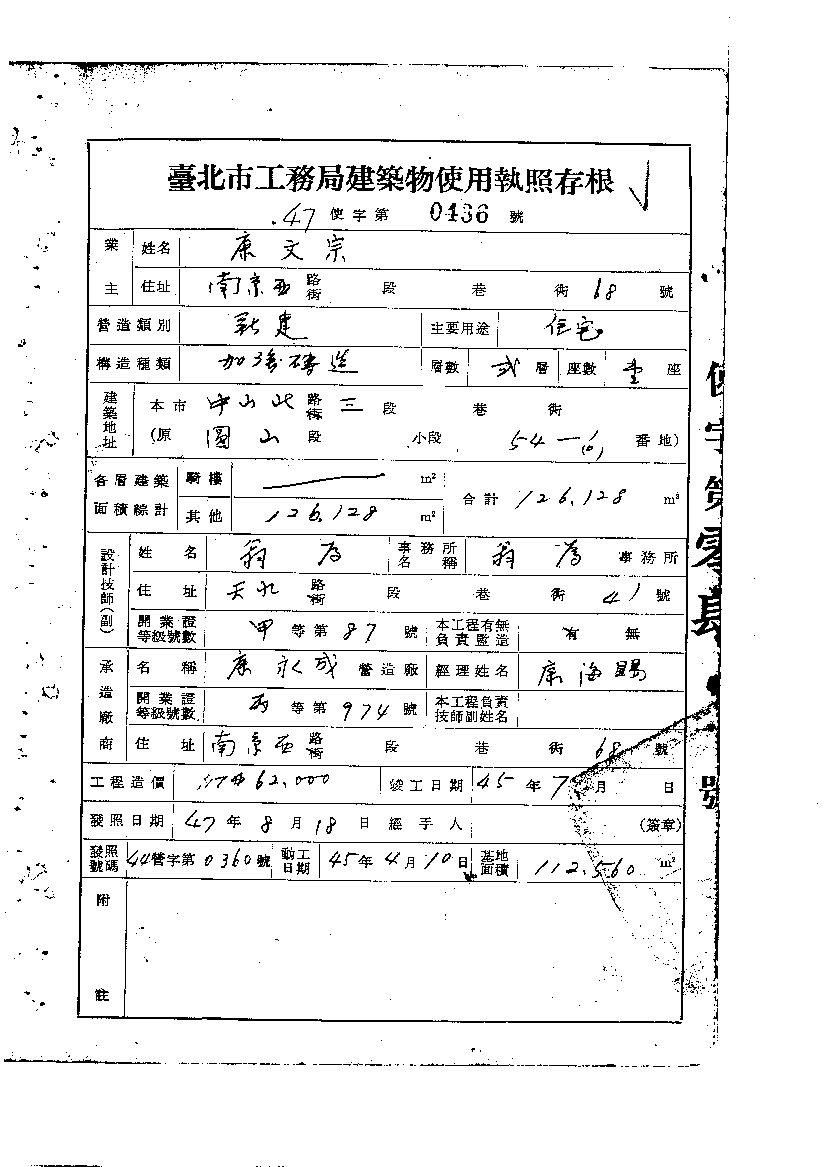 臺北市工務局建築物使用執照存根
47 使字第 0436 號
業主 姓名 康文宗
住址 南京西 路街 段 巷 街 68 號
營造類別 新建 主要用途 住宅
構造種類 加強磚造 層數 弍層 座數 壹座
建築地址 本市 中山北 路街 三段 巷 街
(原 圓山 段 小段 54-6 番地)
各層建築面積綜計 騎樓 m² 合計 126.128 m²
其他 126.128 m²
設計技師(副) 姓名 翁 事務所名稱 翁 事務所
住址 天水 路街 段 巷 街 41 號
開業證等級號數 甲等第 87 號 本工程有無負責監造 有 無
承造廠商 名稱 康永成 營造廠 經理姓名 康海賜
開業證等級號數 丙等第 974 號 本工程負責技師副姓名
住址 南京西 路街 段 巷 街 68 號
工程造價 62,000 竣工日期 45年 7月 日
發照日期 47年8月18日 經手人 (簽章)
發照號碼 44營字第0360號 動工日期 45年4月10日 基地面積 112.560 m²
附註
使字第零肆 號